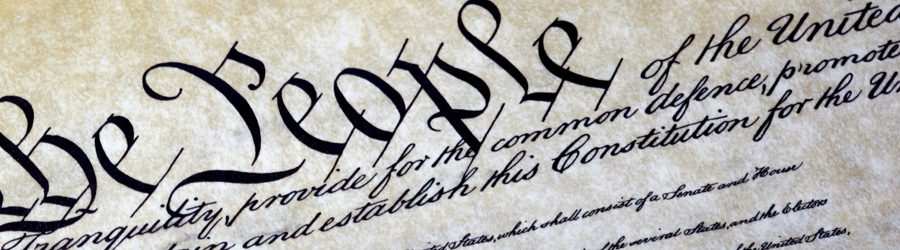 We People of the United
Tranquility, provide for the common defence, promote
and establish this Constitution for the
States, which shall consist of a Senate and House
of the several States, and the Electors
of the United States,